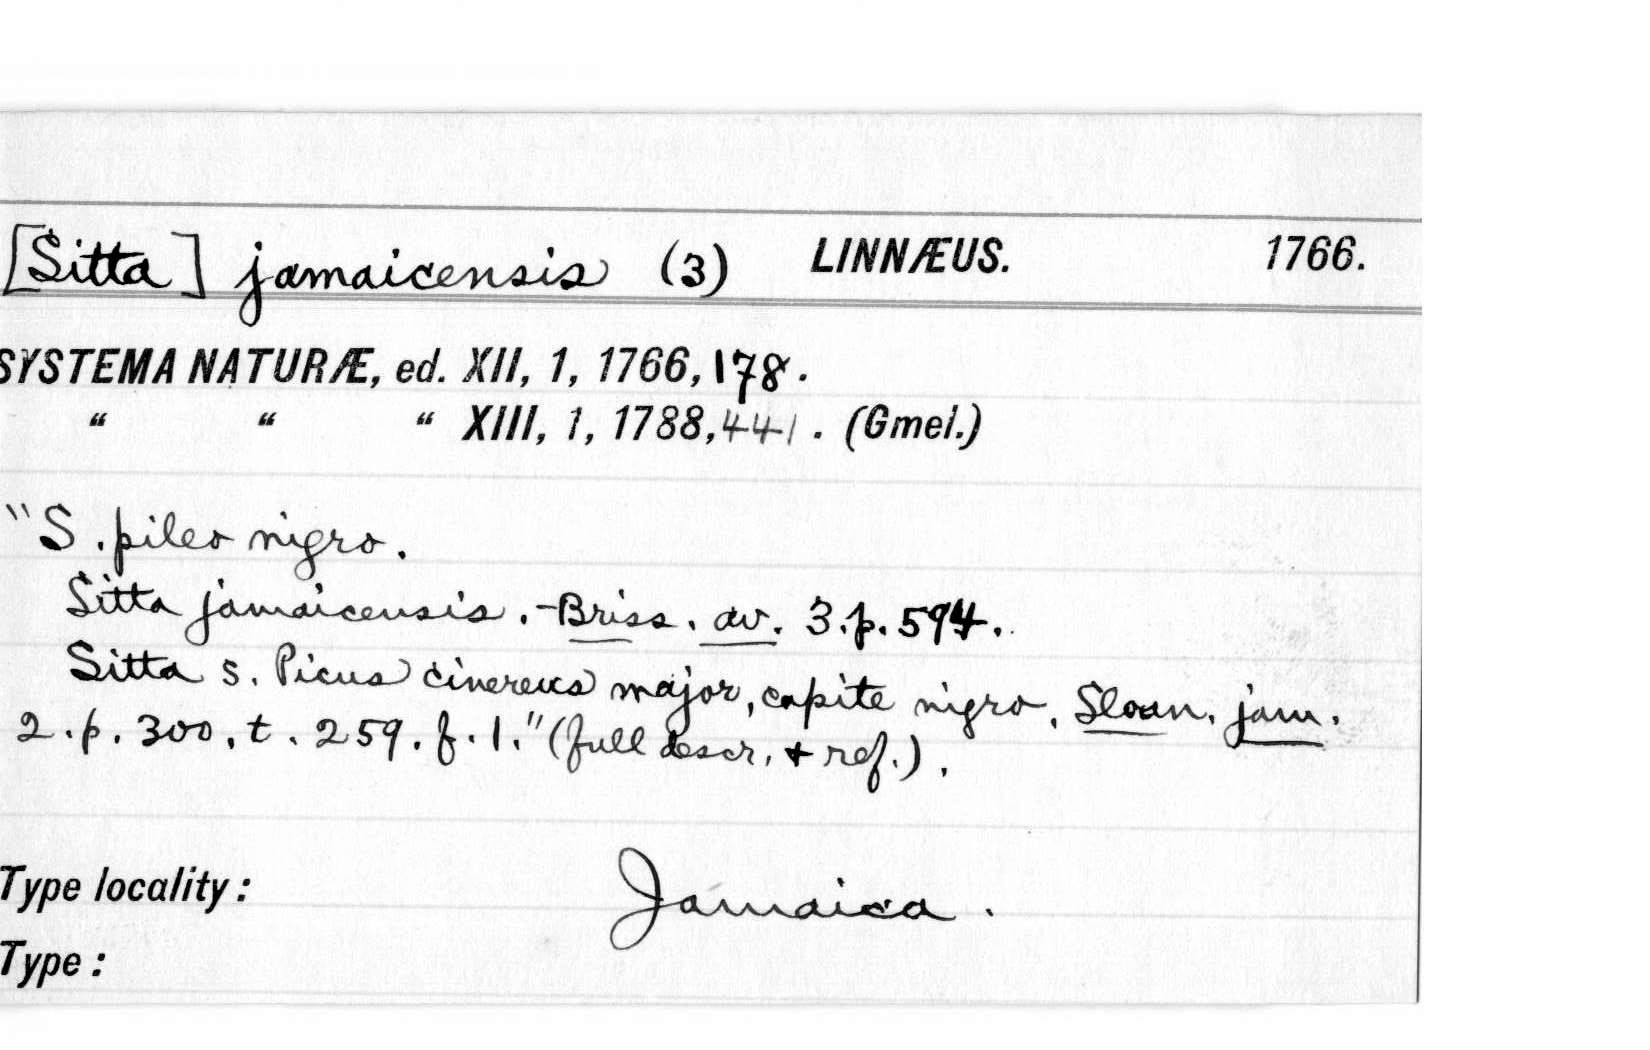 [Sitta] jamaicensis (3) LINNÆUS. 1766.
SYSTEMA NATURÆ, ed. XII, 1, 1766, 178.
“ “ “ XIII, 1, 1788, 441. (Gmel.)
"S. pileo nigro.
Sitta jamaicensis. - Briss. av. 3. p. 594.
Sitta s. Picus cinereus major, capite nigro. Sloan. jam.
2. p. 300. t. 259. f. 1." (full descr. + ref.).
Type locality: Jamaica.
Type: